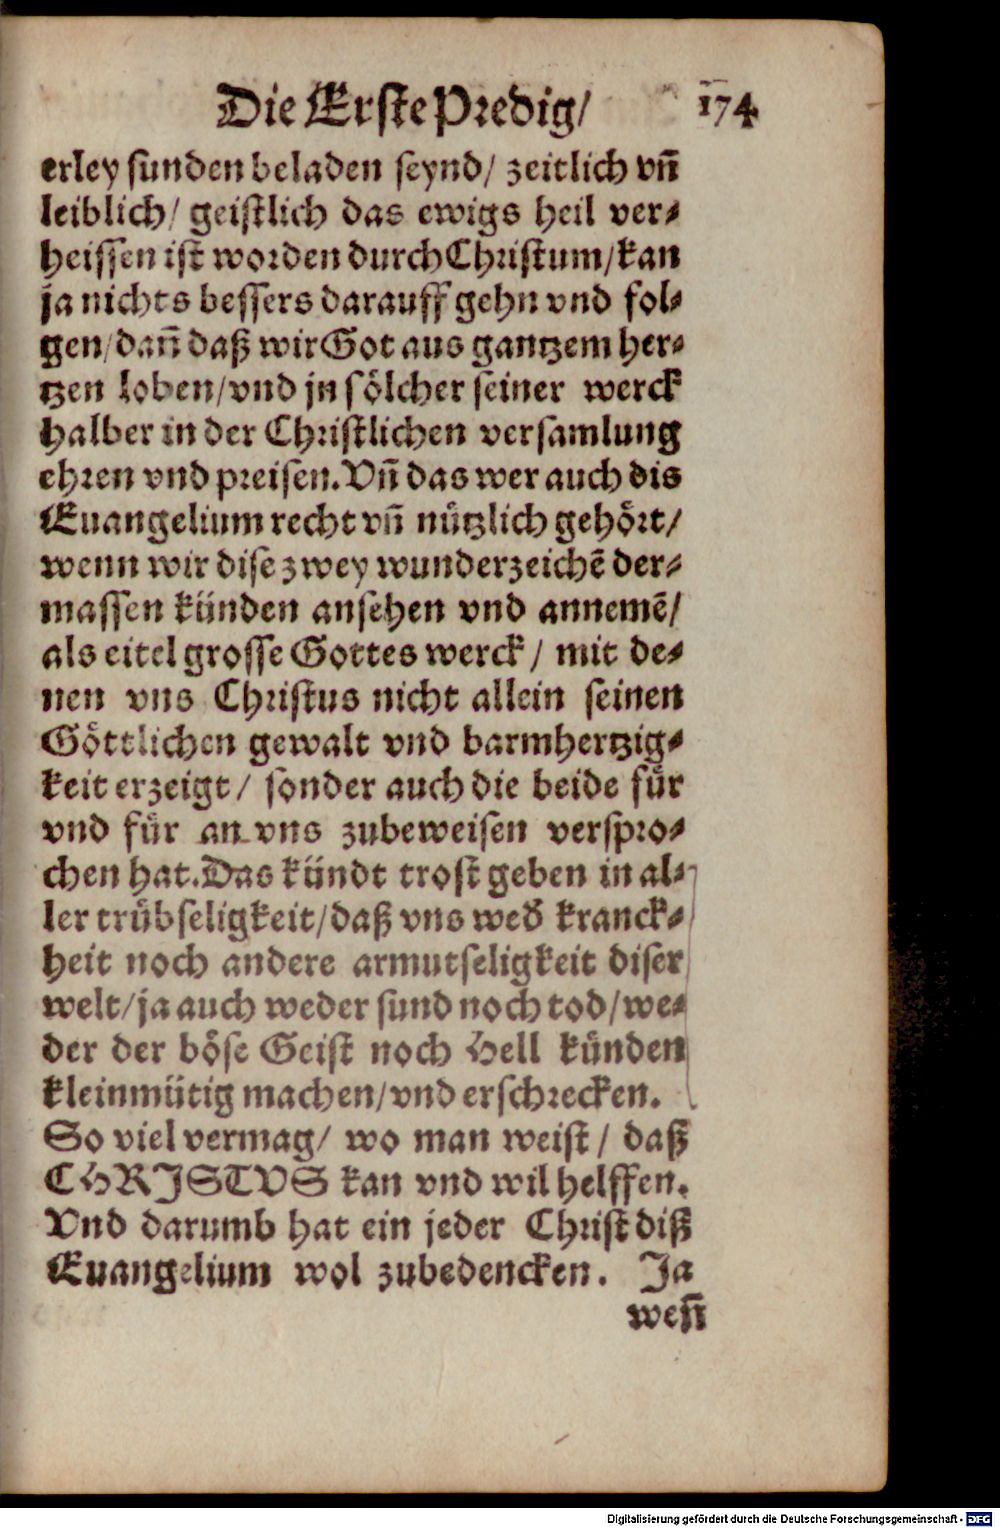 Die Erste Predig/ 174
erley sünden beladen seynd/ zeitlich vn̄
leiblich/ geistlich das ewigs heil ver⸗
heissen ist worden durch Christum/ kan
ja nichts bessers darauff gehn vnd fol⸗
gen/ dan̄ daß wir Got aus gantzem her⸗
tzen loben/ vnd jn sölcher seiner werck
halber in der Christlichen versamlung
ehren vnd preisen. Vn̄ das wer auch dis
Euangelium recht vn̄ nützlich gehört/
wenn wir dise zwey wunderzeichē der⸗
massen künden ansehen vnd annemē/
als eitel grosse Gottes werck/ mit de⸗
nen vns Christus nicht allein seinen
Göttlichen gewalt vnd barmhertzig⸗
keit erzeigt/ sonder auch die beide für
vnd für an vns zubeweisen verspro⸗
chen hat. Das kündt trost geben in al⸗
ler trübseligkeit/ daß vns wed̄ kranck⸗
heit noch andere armutseligkeit diser
welt/ ja auch weder sünd noch tod/ we⸗
der der böse Geist noch Hell künden
kleinmütig machen/ vnd erschrecken.
So viel vermag/ wo man weist/ daß
CHRISTVS kan vnd wil helffen.
Vnd darumb hat ein jeder Christ diß
Euangelium wol zubedencken. Ja
wen̄
Digitalisierung gefördert durch die Deutsche Forschungsgemeinschaft - DFG